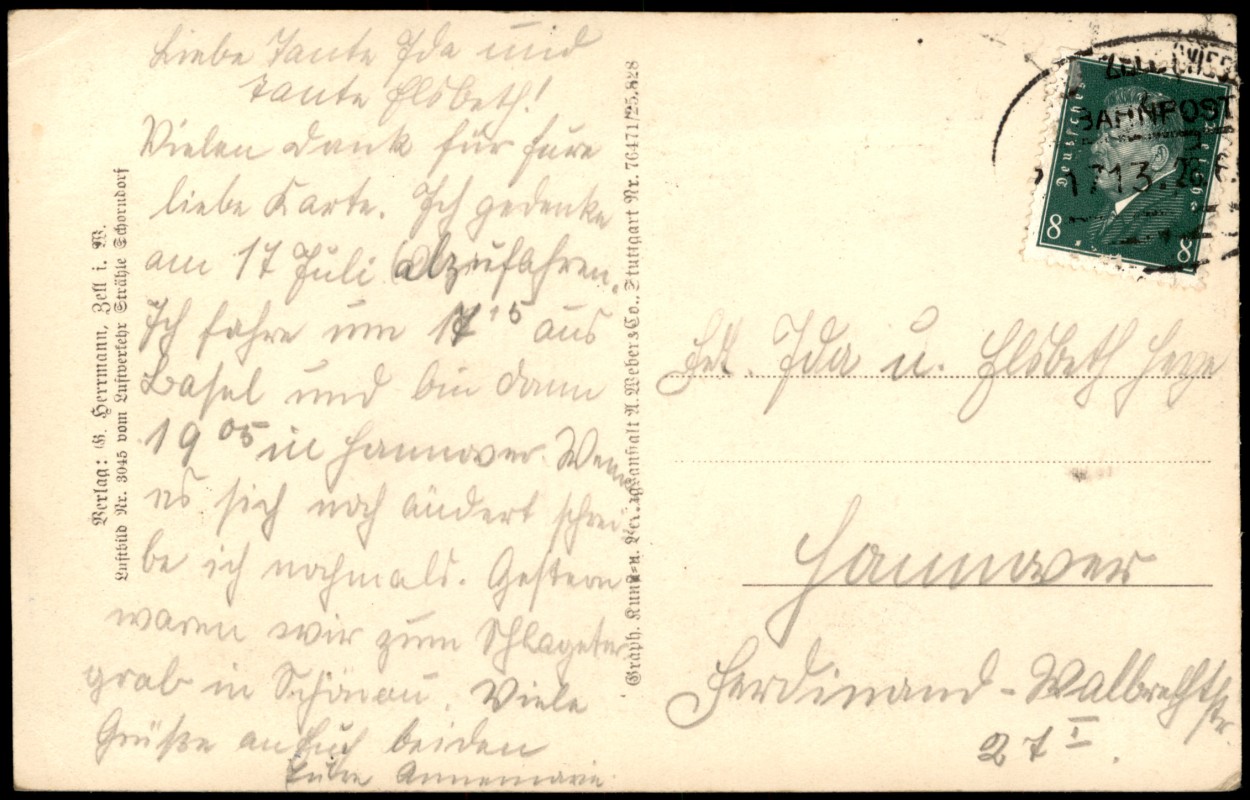 Liebe Tante Ida und
Tante Elsbeth!
Vielen Dank für Eure
liebe Karte. Ich gedenke
am 17 Juli abzufahren.
Ich fahre um 17 15 aus
Basel und bin dann
19 05 in Hannover. Wenn
es sich noch ändert schrei
be ich nochmals. Gestern
waren wir zum Schlageter
grab in Schönau. Viele
Grüße an Euch beiden
Eure Annemarie
Verlag: G. Herrmann, Zell i. W.
Luftbild Nr. 3045 vom Luftverkehr Strähle Schorndorf
Graph. Kunst- u. Verlagsanstalt A. Weber & Co., Stuttgart Nr. 76471/25.828
BAHNPOST
Deutsches Reich
8 8
Frl. Ida u. Elsbeth
Hannover
Ferdinand-Wallbrechtstr.
27 I.